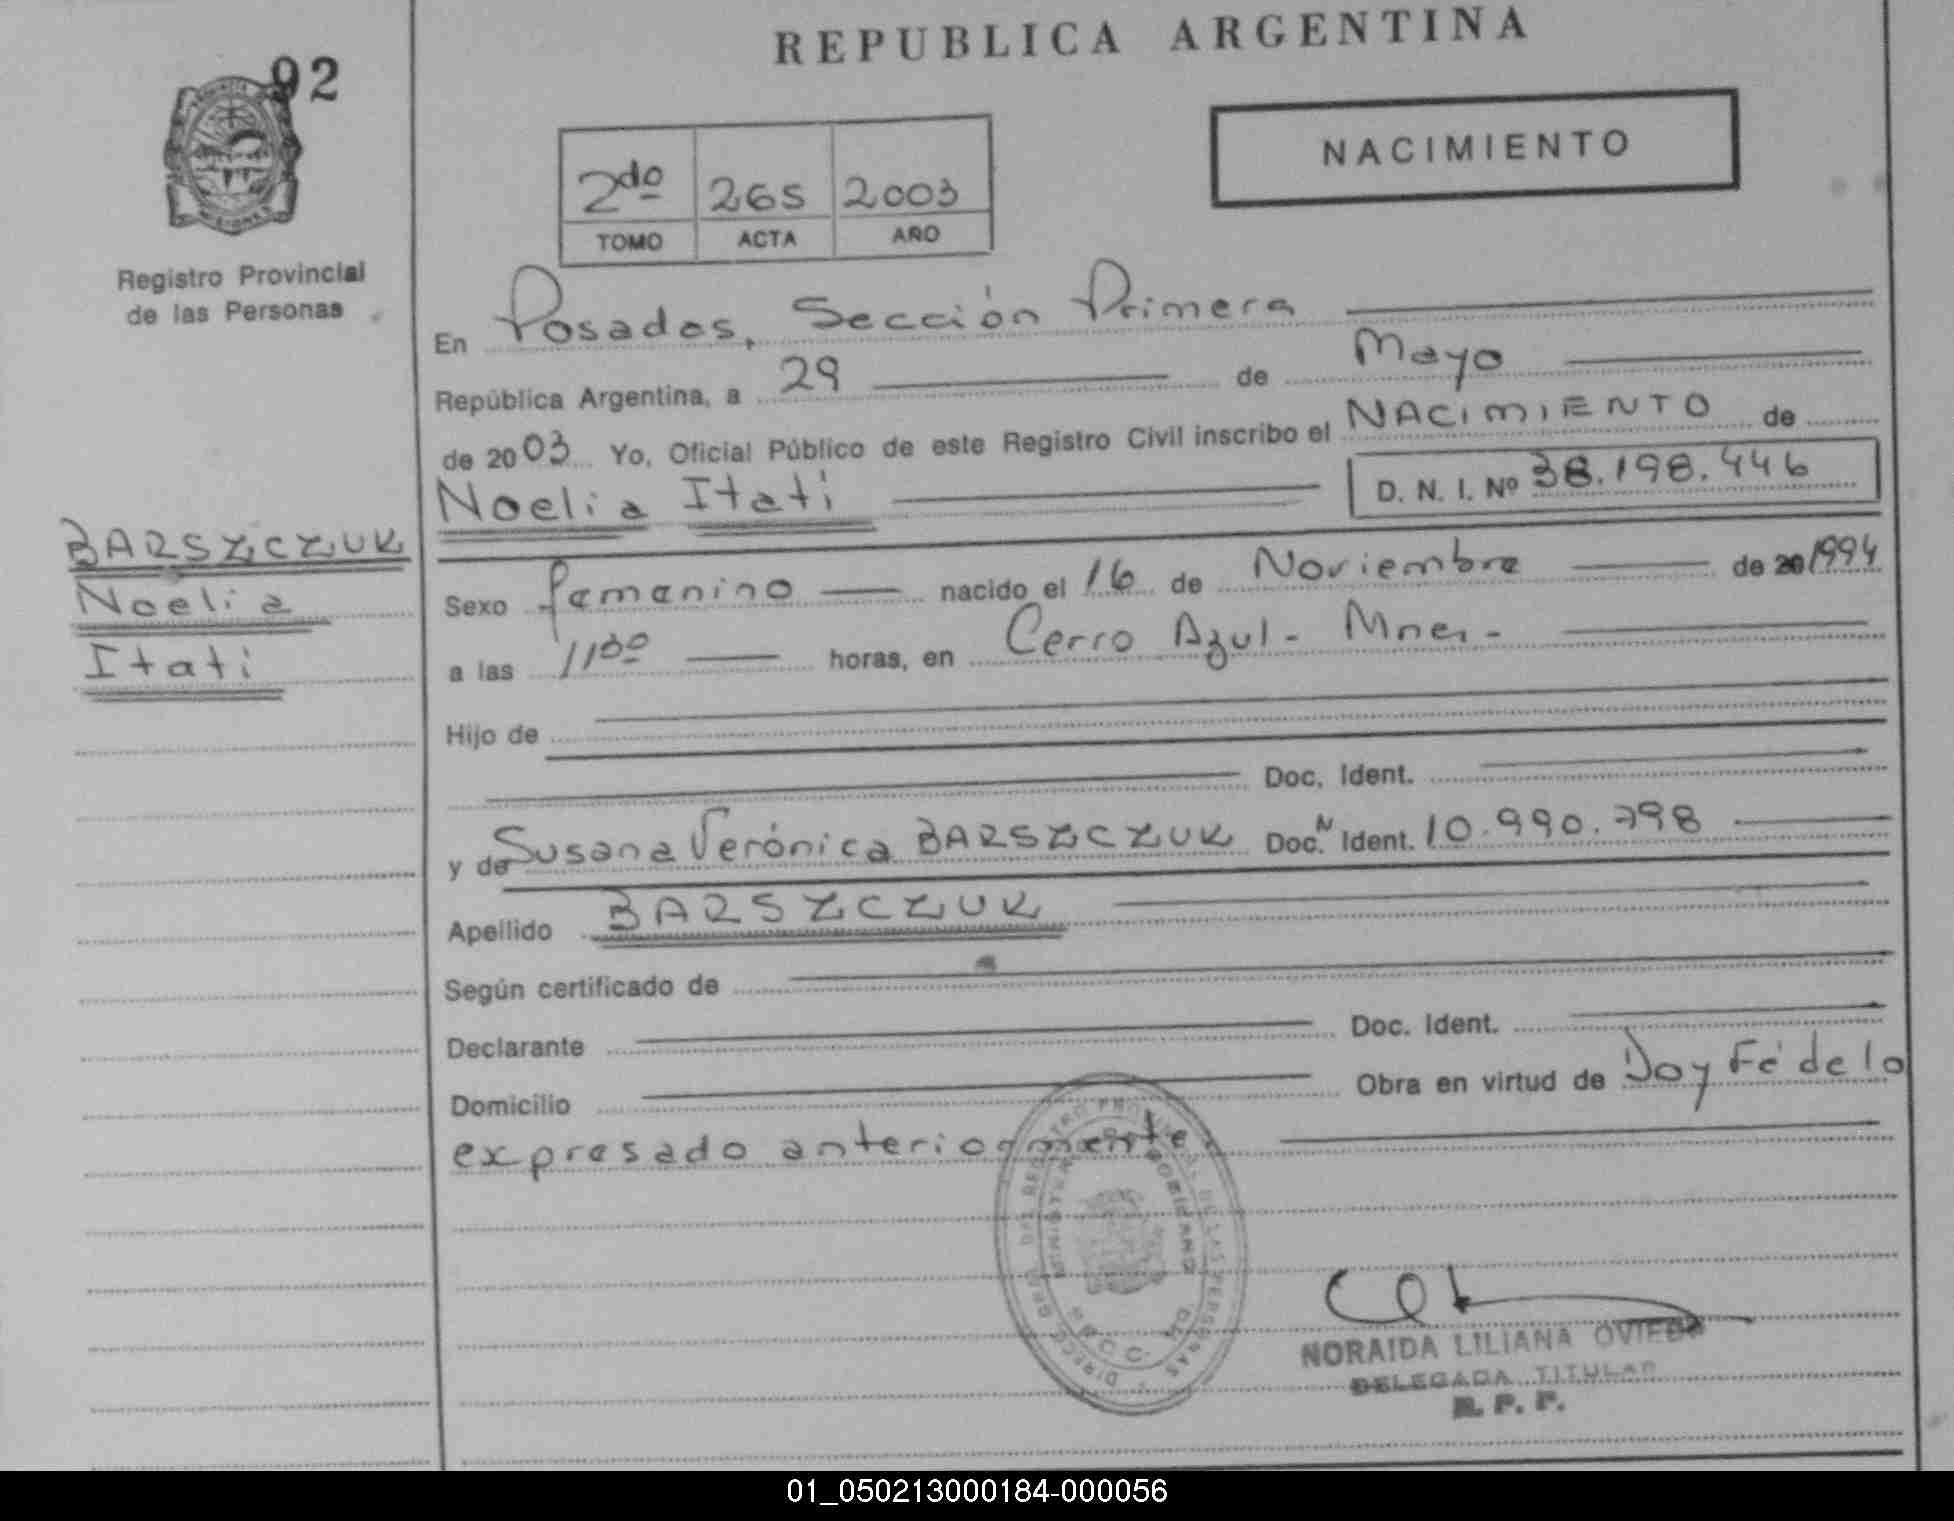 REPUBLICA ARGENTINA
92
NACIMIENTO
2do 265 2003
TOMO ACTA AÑO
Registro Provincial
de las Personas
En Posadas, Sección Primera
República Argentina, a 29 de Mayo
de 2003 Yo, Oficial Público de este Registro Civil inscribo el NACIMIENTO de
Noelia Itati D. N. I. Nº 38.198.446
BARSZCZUK
Noelia
Itati
Sexo femenino nacido el 16 de Noviembre de 20 1994
a las 11:30 horas, en Cerro Azul - Mnes -
Hijo de
Doc. Ident.
y de Susana Verónica BARSZCZUK Doc. N Ident. 10.990.798
Apellido BARSZCZUK
Según certificado de
Declarante Doc. Ident.
Domicilio Obra en virtud de Doy Fé de lo
expresado anteriormente
NORAIDA LILIANA OVIEDO
DELEGADA TITULAR
R. P. P.
01_050213000184-000056